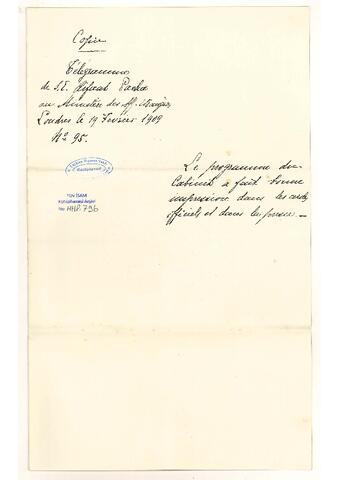 Copie
Télégramme
de S.E. Rifaat Pacha
au Ministère des Aff. Etrangères
Londres le 19 Février 1909
Nº 95.
Le programme du
Cabinet a fait bonne
impression dans les cercles
officiels et dans la presse. —
TDV İSAM
Kütüphanesi Arşivi
No HHP.796